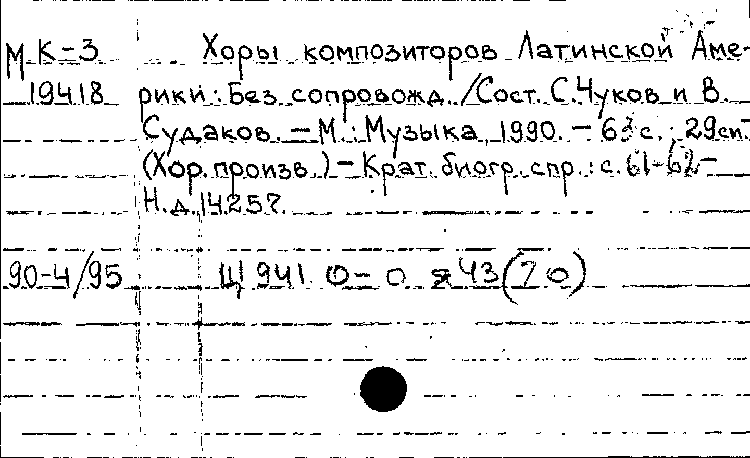 М К-3 Хоры композиторов Латинской Аме-
19418 рики: Без сопровожд. /Сост. С. Чуков и В.
Судаков. – М.: Музыка, 1990. – 63 с.; 29см.–
(Хор. произв.) – Крат. биогр. спр.: с. 61-62 –
Н.д. 14257.
90-4/95 Ц 941 0 – 0 я 43 (70)